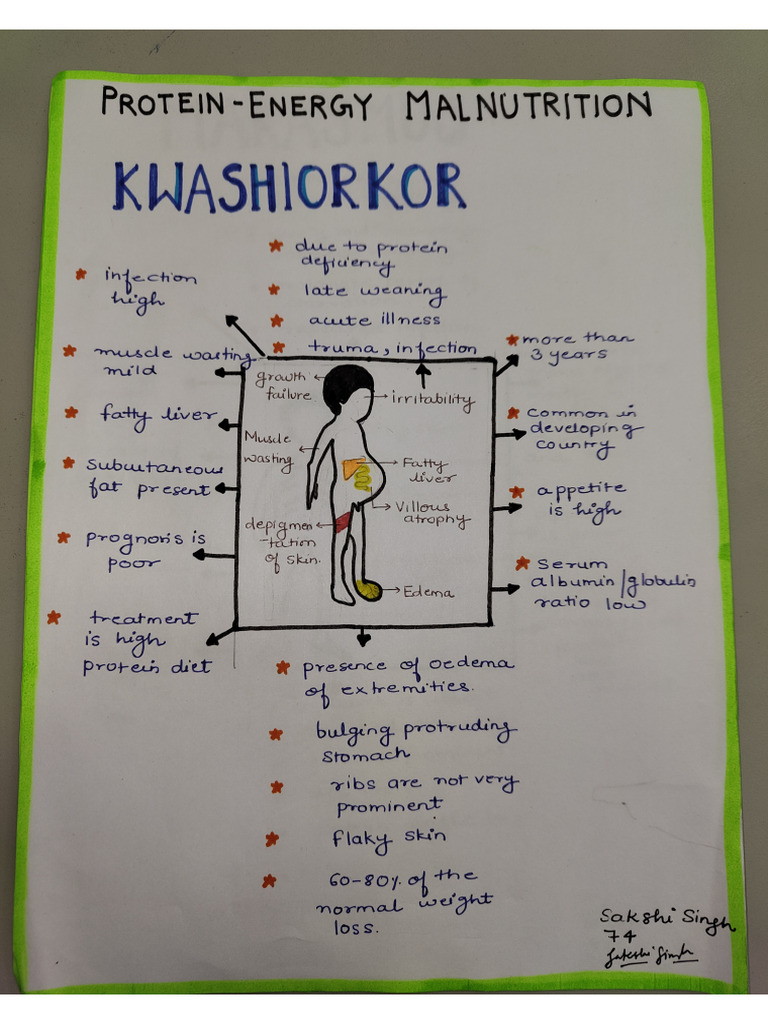 PROTEIN-ENERGY MALNUTRITION
KWASHIORKOR
due to protein
deficiency
late weaning
acute illness
truma, infection
infection
high
muscle wasting
mild
fatty liver
Subcutaneous
fat present
prognosis is
poor
treatment
is high
protein diet
growth
failure
irritability
Muscle
wasting
Fatty
liver
Villous
atrophy
depigmen
-tation
of skin.
Edema
more than
3 years
Common in
developing
country
appetite
is high
Serum
albumin/globulin
ratio low
presence of oedema
of extremities.
bulging protruding
stomach
ribs are not very
prominent
flaky skin
60-80% of the
normal weight
loss.
Sakshi Singh
74
Sakshi Singh